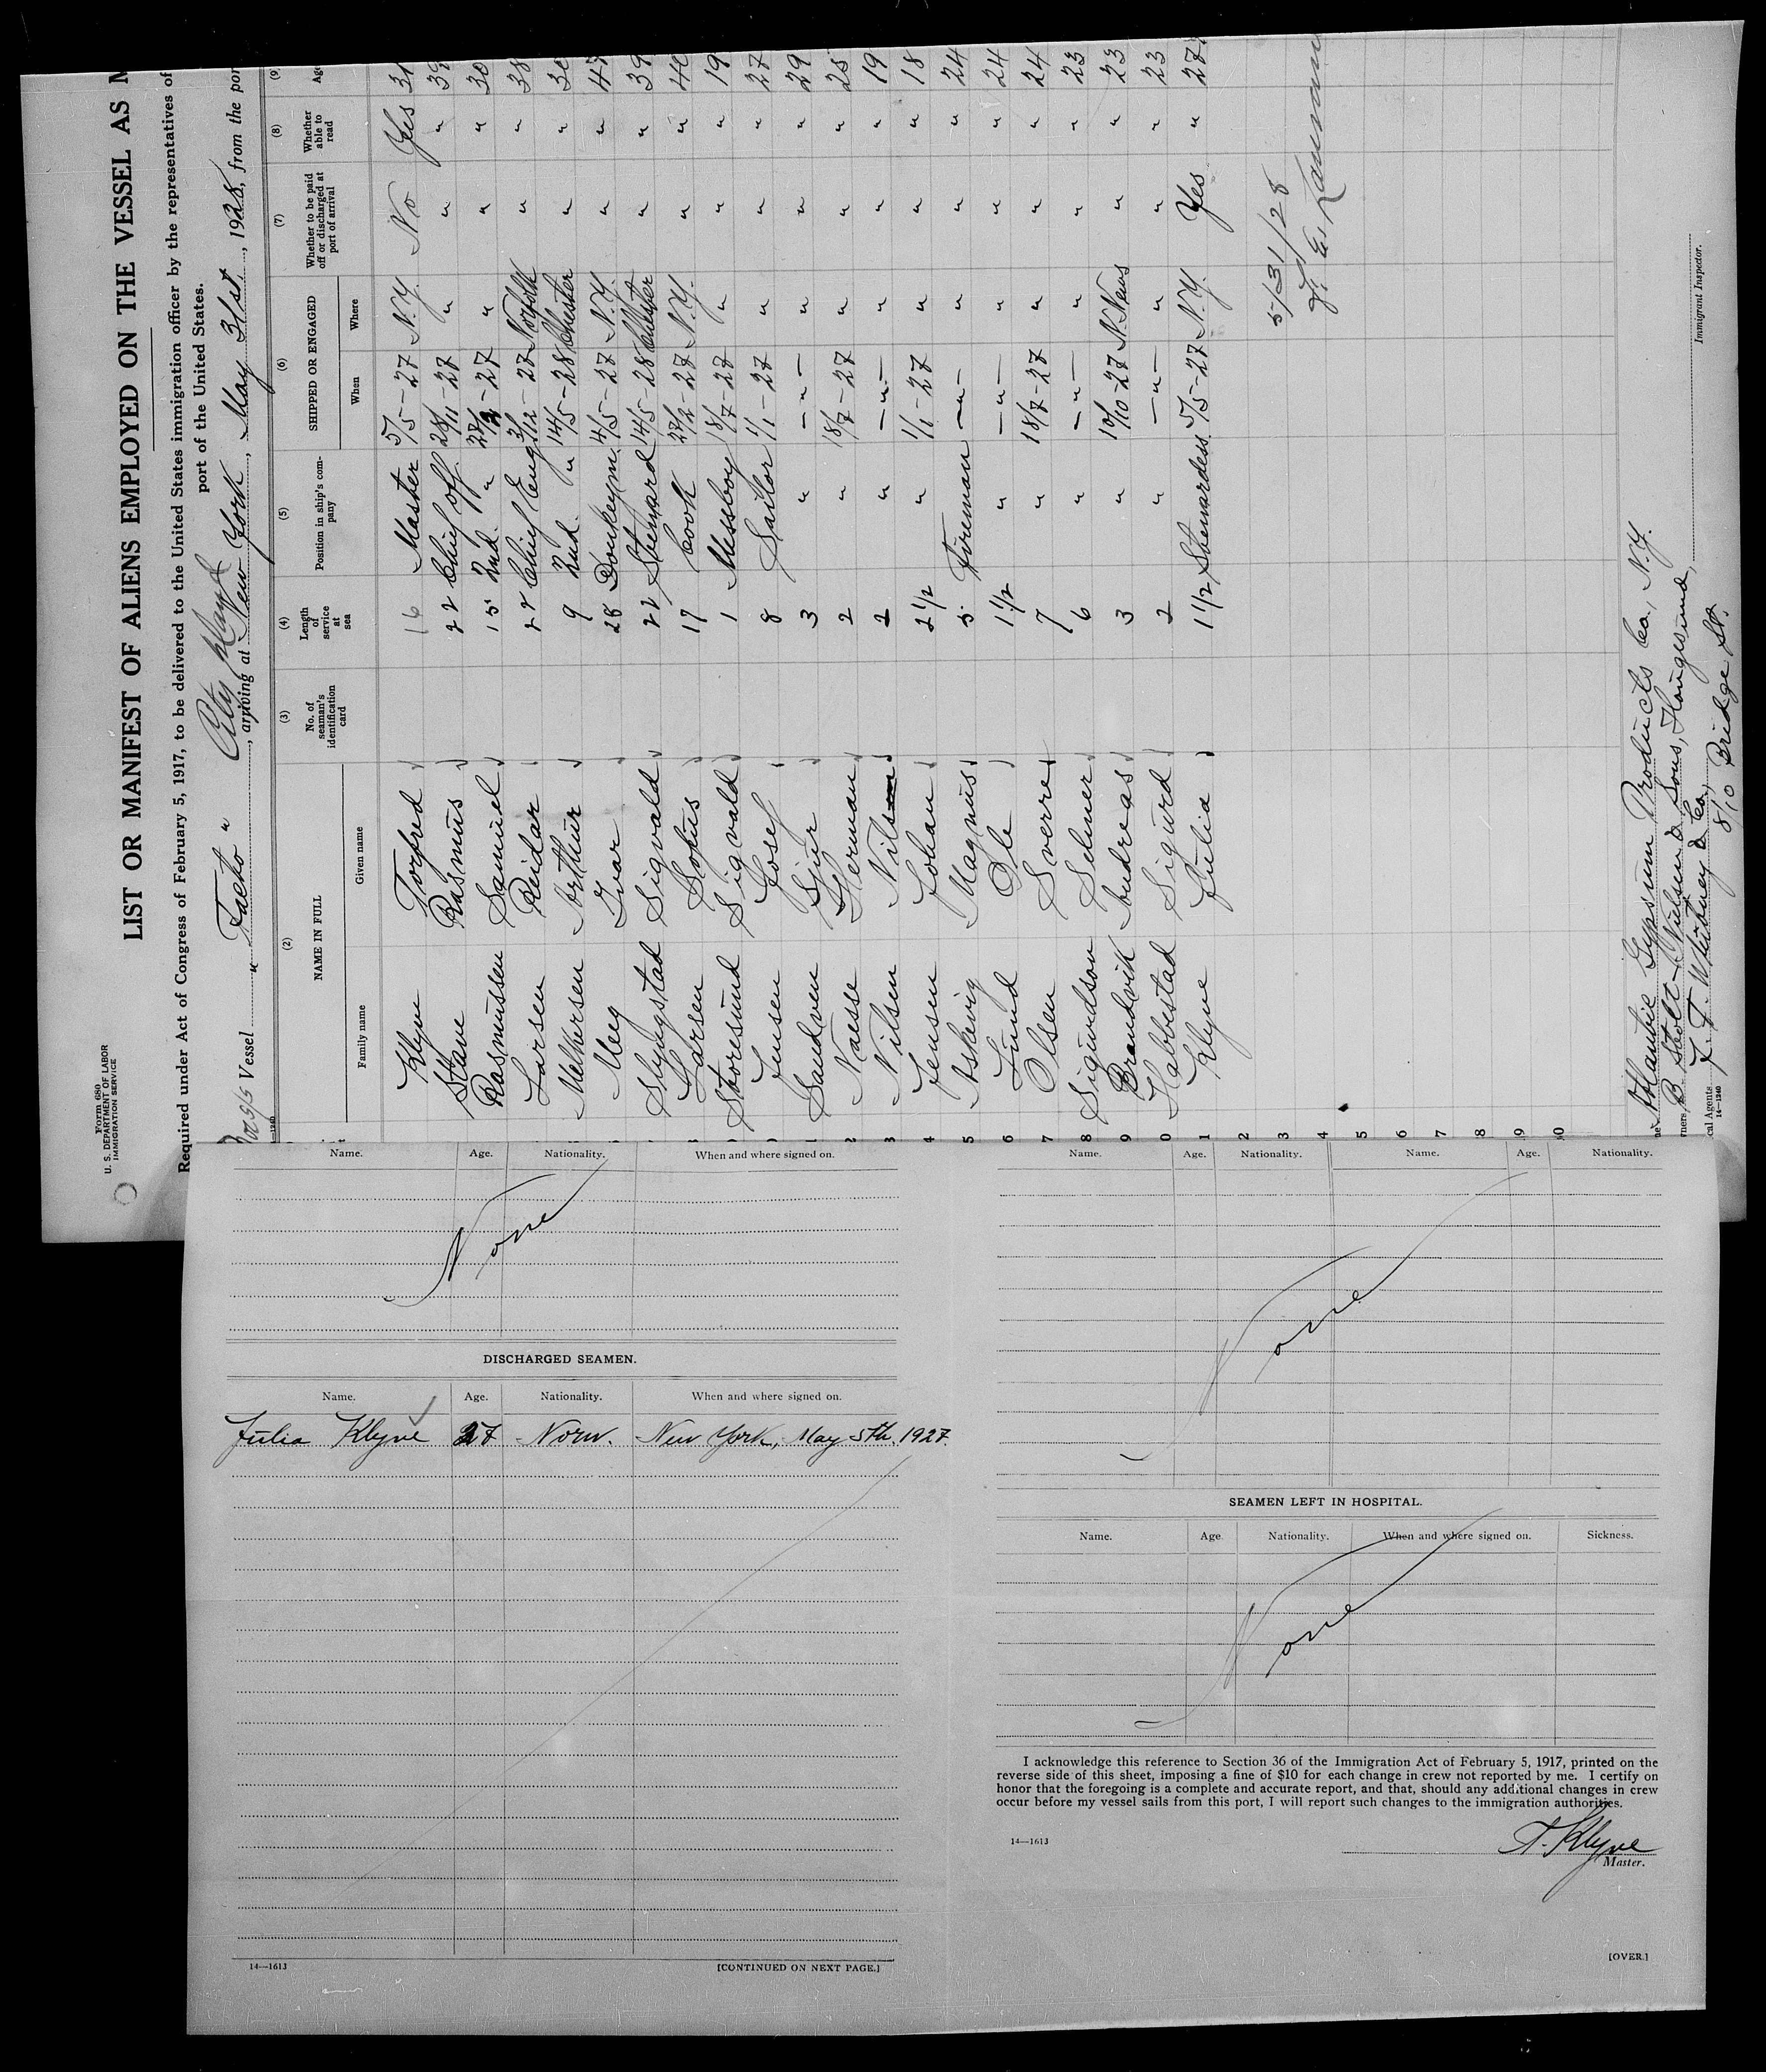 Form 680
U. S. DEPARTMENT OF LABOR
IMMIGRATION SERVICE
LIST OR MANIFEST OF ALIENS EMPLOYED ON THE VESSEL AS M
Required under Act of Congress of February 5, 1917, to be delivered to the United States immigration officer by the representatives of
port of the United States.
Vessel " Facto ", arriving at New York, May 31st, 1928, from the por
(2) (3) (4) (5) (6) (7) (8) (9)
NAME IN FULL No. of seaman's identification card Length of service at sea Position in ship's company SHIPPED OR ENGAGED Whether to be paid off or discharged at port of arrival Whether able to read Age
Family name Given name When Where
Klyne Torford 16 Master 5/5-27 N.Y. No Yes 31
Stave Rasmus 22 Chief off. 28/11-27 " " " 39
Rasmussen Samuel 15 2nd. " - 27 " " " 30
Larsen Reidar 22 Chief Eng. 3/12-27 Norfolk " " 38
Melkersen Arthur 9 2nd. " 14/5-28 Chester " " 30
Meeg Ivar 28 Donkeym. 4/5-27 N.Y. " " 47
Slyngstad Sigvald 22 Steward 14/5-28 Chester " " 39
Larsen Sofus 17 Cook 27/2-28 N.Y. " " 40
Storesund Sigvald 1 Messboy 18/7-27 " " " 19
Jensen Josef 8 Sailor 1/1-27 " " " 27
Sandven 3 " -"- " " " 29
Naesse Herman 2 " 18/7-27 " " " 25
Nilsen Nils 2 " -"- " " " 19
Jensen Johan 2 1/2 " 1/1-27 " " " 18
Askevig Magnus 5 Fireman -"- " " " 24
Lund Ole 1 1/2 " -"- " " " 24
Olsen Sverre 7 " 18/7-27 " " " 24
Sigurdson Selmer 6 " -"- " " " 23
Brandvik Andreas 3 " 10/10-27 N. News " " 23
Habbestad Sigurd 2 " -"- " " " 23
Klyne Julia 1 1/2 Stewardess 5/5-27 N.Y. Yes " 27
5/31/28
Immigrant Inspector.
Atlantic Gypsum Products Co., N.Y.
B. Stolt-Nielsen & Sons, Haugesund,
cal Agents F. F. Whitney & Co.,
8/10 Bridge St.
14—1240
Name. Age. Nationality. When and where signed on.
None
DISCHARGED SEAMEN.
Name. Age. Nationality. When and where signed on.
Julia Klyne 27 Norw. New York, May 5th. 1927.
14—1613
[CONTINUED ON NEXT PAGE.]
Name. Age. Nationality. Name. Age. Nationality.
None
SEAMEN LEFT IN HOSPITAL.
Name. Age. Nationality. When and where signed on. Sickness.
None
I acknowledge this reference to Section 36 of the Immigration Act of February 5, 1917, printed on the
reverse side of this sheet, imposing a fine of $10 for each change in crew not reported by me. I certify on
honor that the foregoing is a complete and accurate report, and that, should any additional changes in crew
occur before my vessel sails from this port, I will report such changes to the immigration authorities.
14—1613
T. Klyne
Master.
[OVER.]